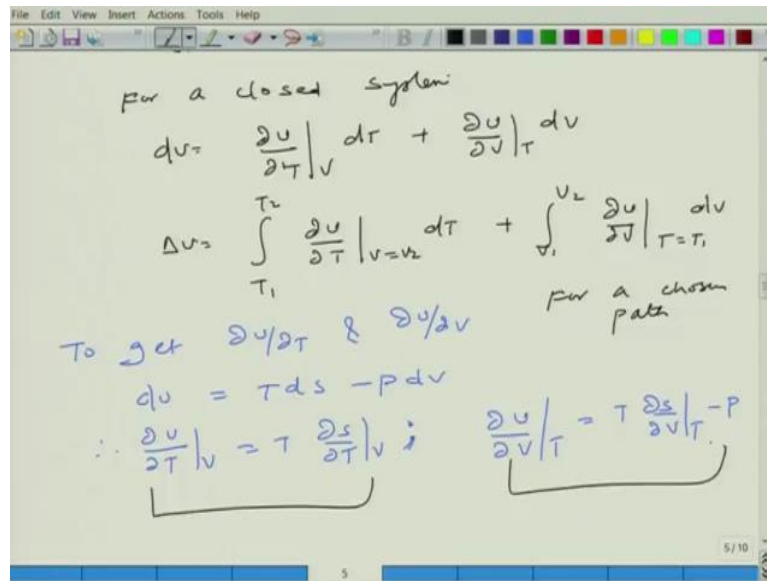 File Edit View Insert Actions Tools Help
B I
For a closed system
dU = ∂U/∂T|V dT + ∂U/∂V|T dV
ΔU = ∫T1^T2 ∂U/∂T|V=V2 dT + ∫V1^V2 ∂U/∂V|T=T1 dV
For a chosen path
To get ∂U/∂T & ∂U/∂V
dU = Tds - Pdv
∴ ∂U/∂T|V = T ∂S/∂T|V ; ∂U/∂V|T = T ∂S/∂V|T - P
5/10
5